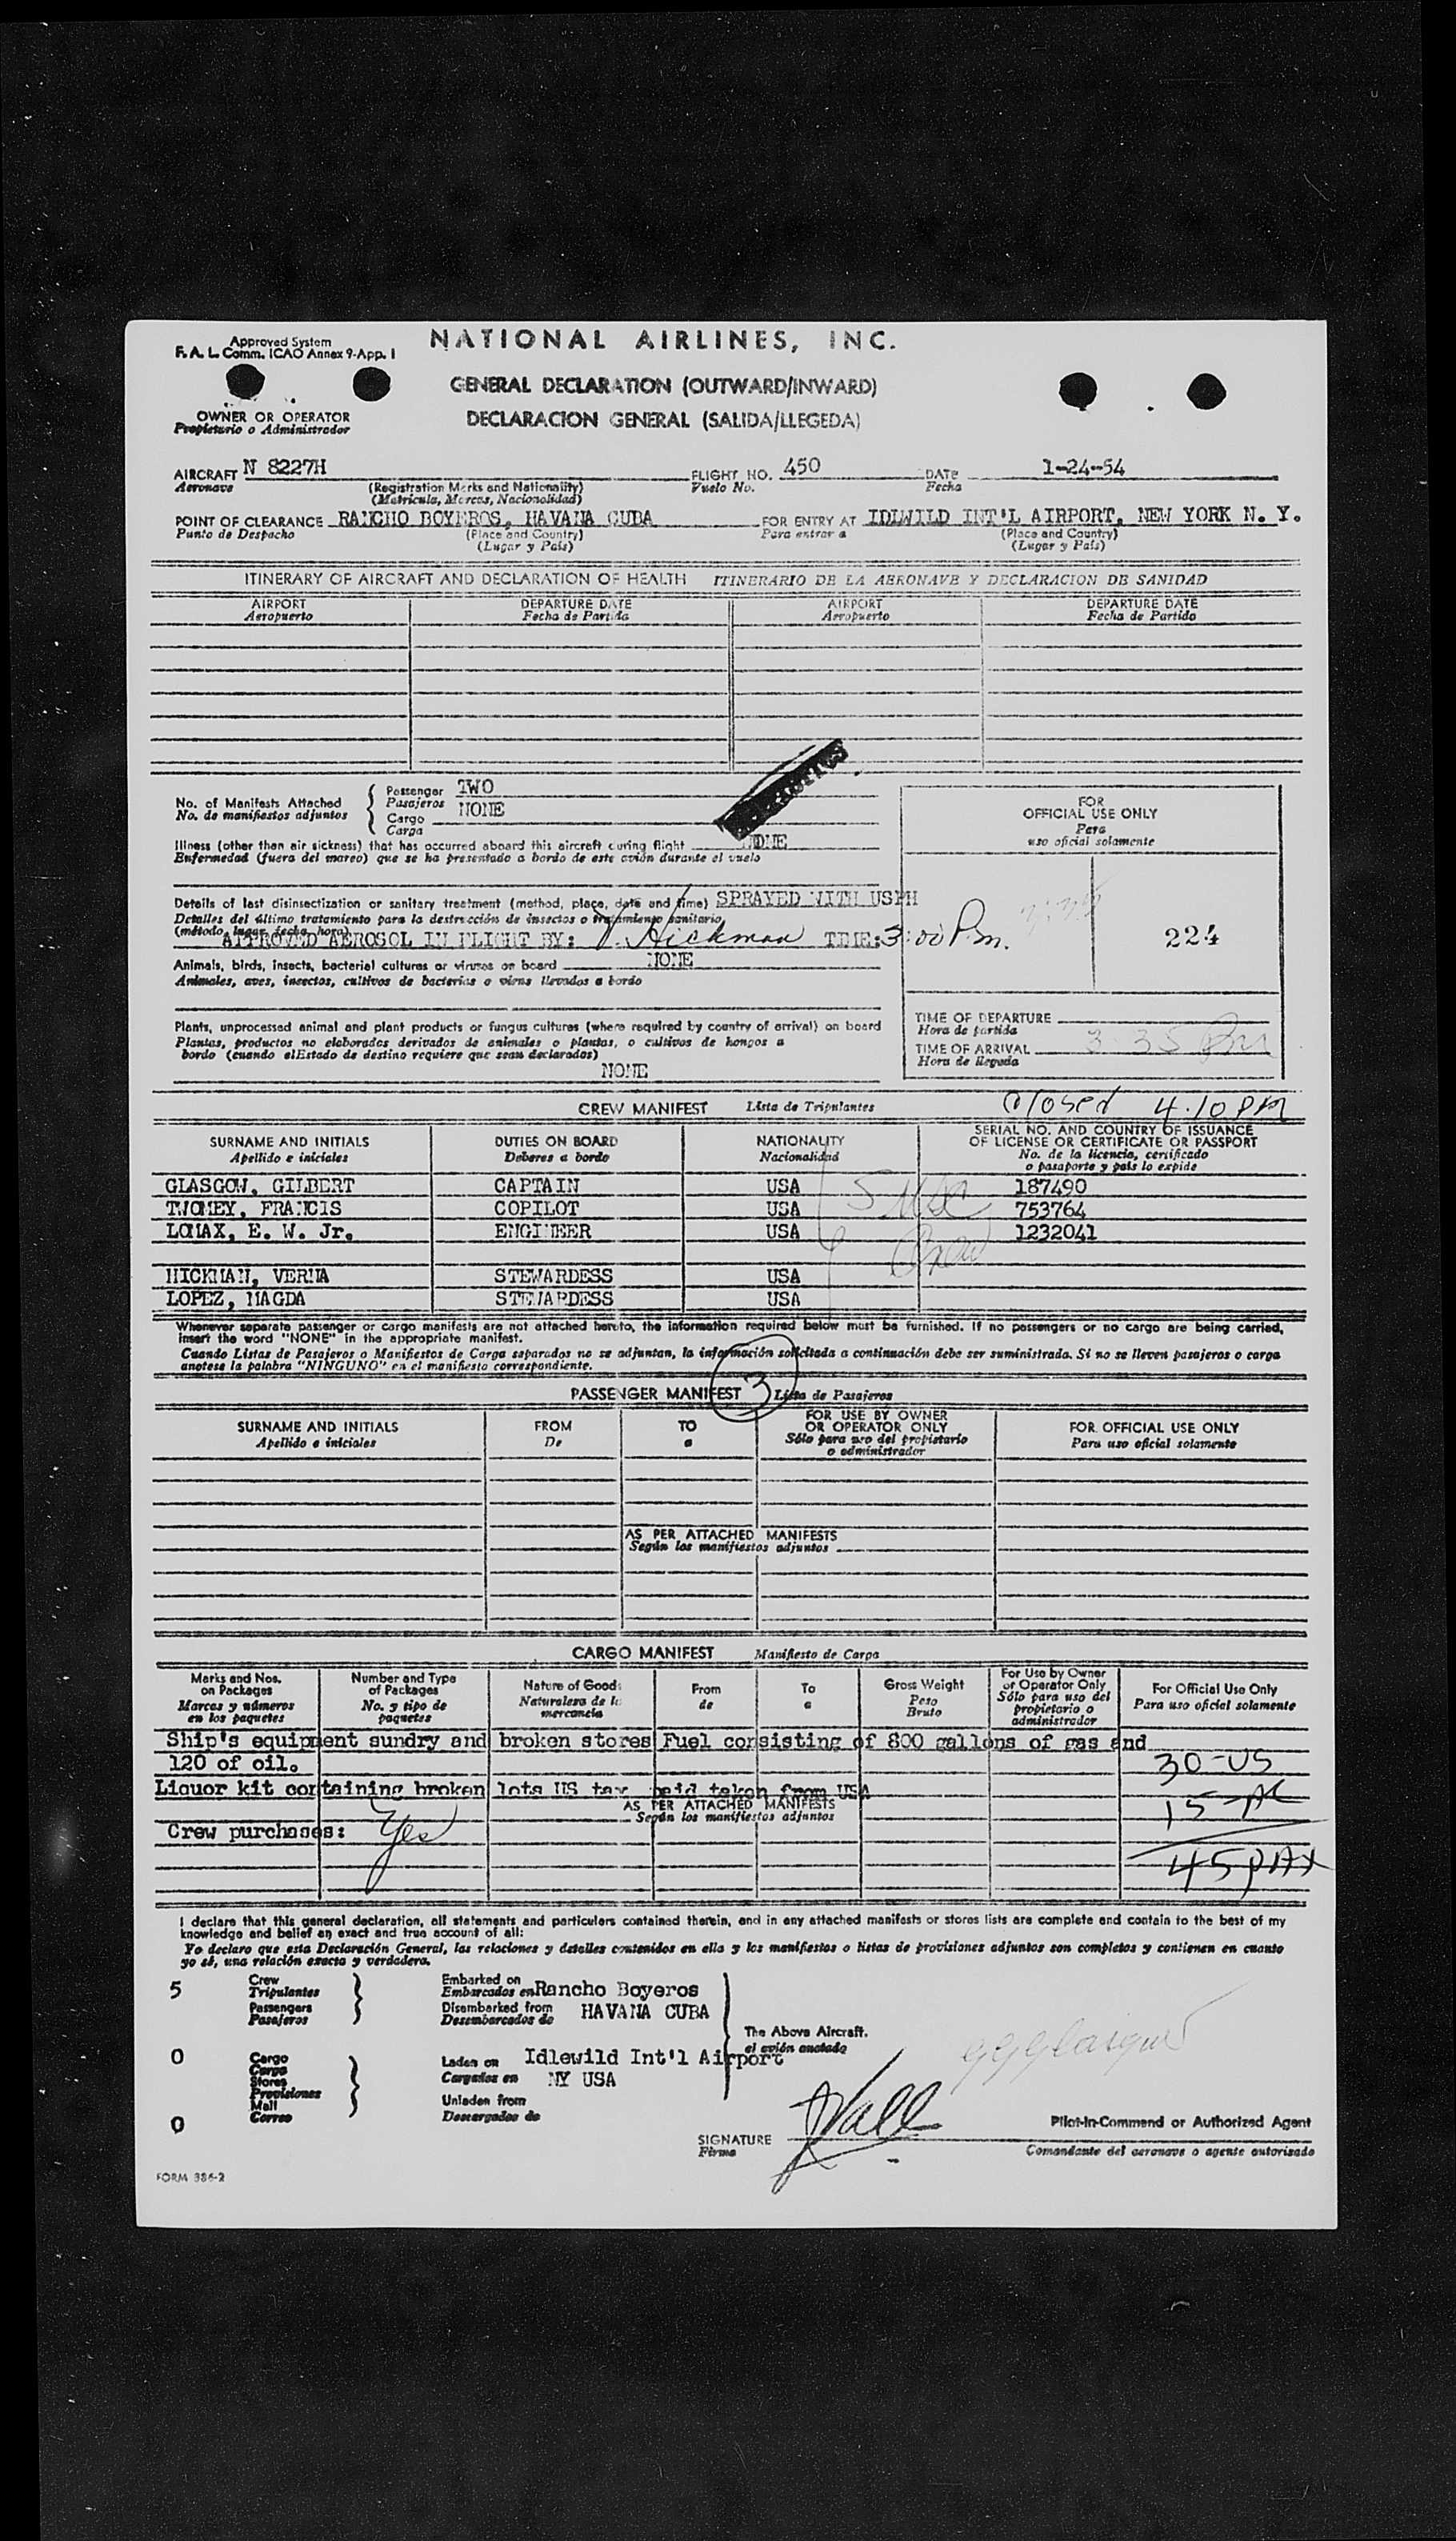 Approved System
F. A. L. Comm. ICAO Annex 9-App. I
NATIONAL AIRLINES, INC.
GENERAL DECLARATION (OUTWARD/INWARD)
DECLARACION GENERAL (SALIDA/LLEGEDA)
OWNER OR OPERATOR
Propietario o Administrador
AIRCRAFT N 8227H FLIGHT NO. 450 DATE 1-24-54
Aeronave (Registration Marks and Nationality) Vuelo No. Fecha
(Matricula, Marcas, Nacionalidad)
POINT OF CLEARANCE RANCHO BOYEROS, HAVANA CUBA FOR ENTRY AT IDLWILD INT'L AIRPORT, NEW YORK N. Y.
Punto de Despacho (Place and Country) Para entrar a (Place and Country)
(Lugar y País) (Lugar y País)
ITINERARY OF AIRCRAFT AND DECLARATION OF HEALTH ITINERARIO DE LA AERONAVE Y DECLARACION DE SANIDAD
AIRPORT DEPARTURE DATE AIRPORT DEPARTURE DATE
Aeropuerto Fecha de Partida Aeropuerto Fecha de Partida
No. of Manifests Attached
No. de manifiestos adjuntos
Passenger TWO
Pasajeros
Cargo NONE
Carga
Illness (other than air sickness) that has occurred aboard this aircraft during flight NONE
Enfermedad (fuera del mareo) que se ha presentado a bordo de este avión durante el vuelo
Details of last disinsectization or sanitary treatment (method, place, date and time) SPRAYED WITH USPH
Detalles del último tratamiento para la destrucción de insectos o tratamiento sanitario,
(método, lugar, fecha, hora)
APPROVED AEROSOL IN FLIGHT BY: V. Hickman TIME: 3:00 P.m.
Animals, birds, insects, bacterial cultures or viruses on board NONE
Animales, aves, insectos, cultivos de bacterias o virus llevados a bordo
Plants, unprocessed animal and plant products or fungus cultures (where required by country of arrival) on board
Plantas, productos no elaborados derivados de animales o plantas, o cultivos de hongos a
bordo (cuando elEstado de destino requiere que sean declarados)
NONE
FOR
OFFICIAL USE ONLY
Para
uso oficial solamente
224
TIME OF DEPARTURE
Hora de partida
TIME OF ARRIVAL 3 35 Pm
Hora de llegada
CREW MANIFEST Lista de Tripulantes
Closed 4.10 PM
SURNAME AND INITIALS DUTIES ON BOARD NATIONALITY SERIAL NO. AND COUNTRY OF ISSUANCE
OF LICENSE OR CERTIFICATE OR PASSPORT
Apellido e iniciales Deberes a bordo Nacionalidad No. de la licencia, certificado
o pasaporte y país lo expide
GLASGOW, GILBERT CAPTAIN USA 187490
TWOMEY, FRANCIS COPILOT USA 753764
LOMAX, E. W. Jr. ENGINEER USA 1232041
HICKMAN, VERNA STEWARDESS USA
LOPEZ, MAGDA STEWARDESS USA
5 USC
Crew
Whenever separate passenger or cargo manifests are not attached hereto, the information required below must be furnished. If no passengers or no cargo are being carried,
insert the word "NONE" in the appropriate manifest.
Cuando Listas de Pasajeros o Manifiestos de Carga separados no se adjuntan, la información solicitada a continuación debe ser suministrada. Si no se lleven pasajeros o carga
anotese la palabra "NINGUNO" en el manifiesto correspondiente.
PASSENGER MANIFEST 3 Lista de Pasajeros
SURNAME AND INITIALS FROM TO FOR USE BY OWNER
OR OPERATOR ONLY FOR OFFICIAL USE ONLY
Apellido e iniciales De a Sólo para uso del propietario
o administrador Para uso oficial solamente
AS PER ATTACHED MANIFESTS
Según los manifiestos adjuntos
CARGO MANIFEST Manifiesto de Carga
Marks and Nos.
on Packages
Marcas y números
en los paquetes
Number and Type
of Packages
No. y tipo de
paquetes
Nature of Goods
Naturaleza de la
mercancía
From
de
To
a
Gross Weight
Peso
Bruto
For Use by Owner
or Operator Only
Sólo para uso del
propietario o
administrador
For Official Use Only
Para uso oficial solamente
Ship's equipment sundry and broken stores Fuel consisting of 800 gallons of gas and
120 of oil.
Liquor kit containing broken lots US tax paid taken from USA
AS PER ATTACHED MANIFESTS
Según los manifiestos adjuntos
Crew purchases: Yes
30-US
15-AL
45 PAX
I declare that this general declaration, all statements and particulars contained therein, and in any attached manifests or stores lists are complete and contain to the best of my
knowledge and belief an exact and true account of all:
Yo declaro que esta Declaración General, las relaciones y detalles contenidos en ella y los manifiestos o listas de provisiones adjuntos son completos y contienen en cuanto
yo sé, una relación exacta y verdadera.
5 Crew
Tripulantes
Passengers
Pasajeros
Embarked on
Embarcados en Rancho Boyeros
Disembarked from HAVANA CUBA
Desembarcados de
The Above Aircraft.
el avión anotado
0 Cargo
Carga
Stores
Provisiones
Mail
0 Correo
Laden on Idlewild Int'l Airport
Cargados en NY USA
Unladen from
Descargados de
GGGlasgow
SIGNATURE Pilot-in-Command or Authorized Agent
Firma Comandante del aeronave o agente autorizado
FORM 386-2